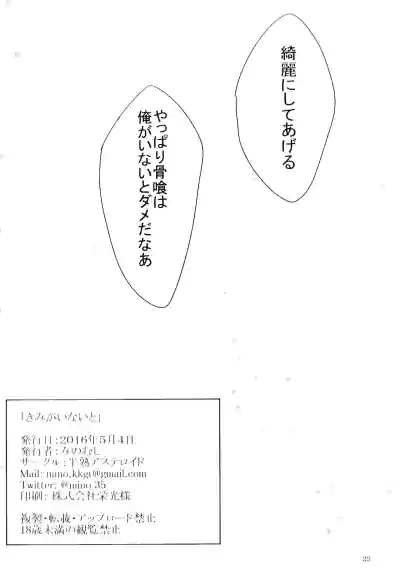 綺麗にしてあげる
やっぱり骨喰は
俺がいないとダメだなあ
「きみがいないと」
発行日：2016年5月4日
発行者：みのむし
サークル：半熟アステロイド
Mail: mino.kkgt@gmail.com
Twitter: @mino 35
印刷：株式会社栄光様
複製・転載・アップロード禁止
18歳未満の観覧禁止
22